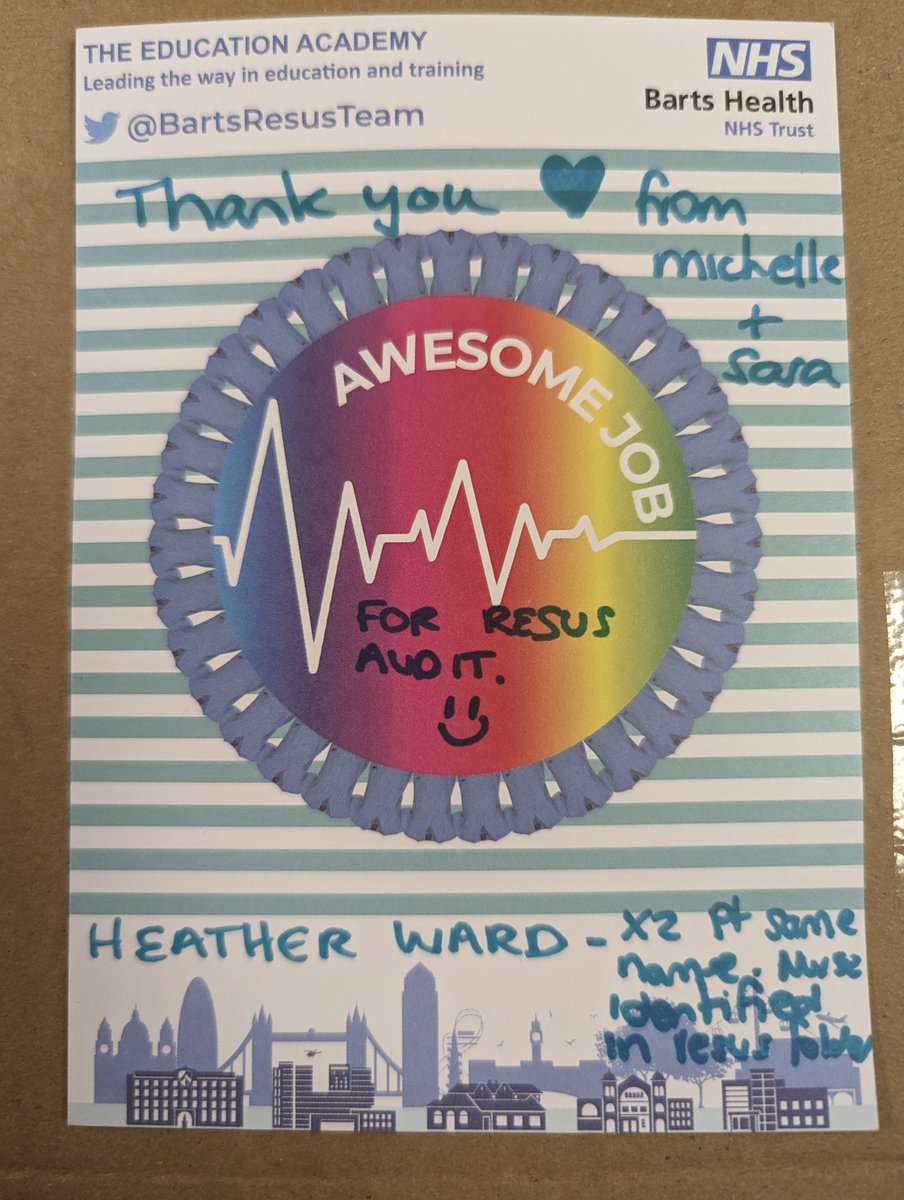 THE EDUCATION ACADEMY
Leading the way in education and training
@BartsResusTeam
NHS
Barts Health
NHS Trust
Thank you ♥ from
michelle
+
Sara
AWESOME JOB
FOR RESUS
AUDIT.
HEATHER WARD - X2 Pt same
name. Nurse
identified
in resus folder